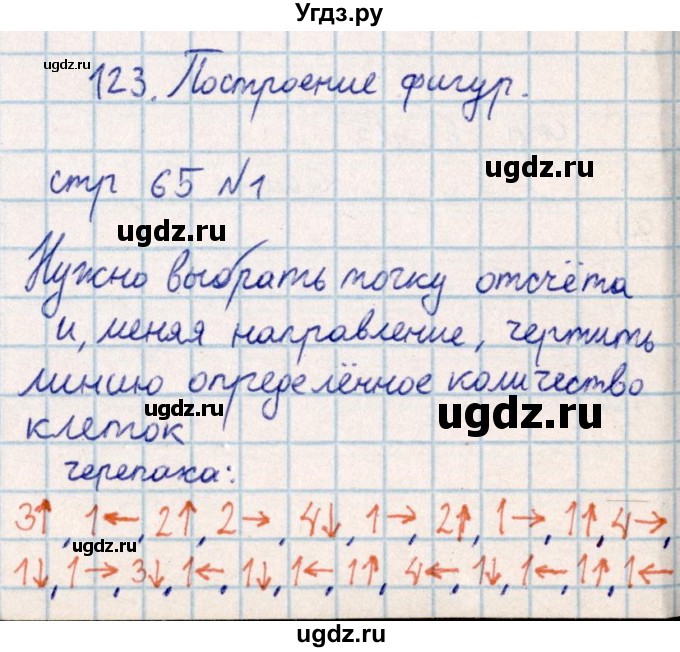 Угдз.ру
ugdz.ru
123. Построение фигур.
ugdz.ru
стр 65 №1
ugdz.ru
Нужно выбрать точку отсчёта
и, меняя направление, чертить
линию определённое количество
ugdz.ru
ugdz.ru
клеток
черепаха:
3↑, 1←, 2↑, 2→, 4↓, 1→, 2↑, 1→, 1↑, 4→,
ugdz.ru
1↓, 1→, 3↓, 1←, 1↓, 1←, 1↑, 4←, 1↓, 1←, 1↑, 1←
ugdz.ru